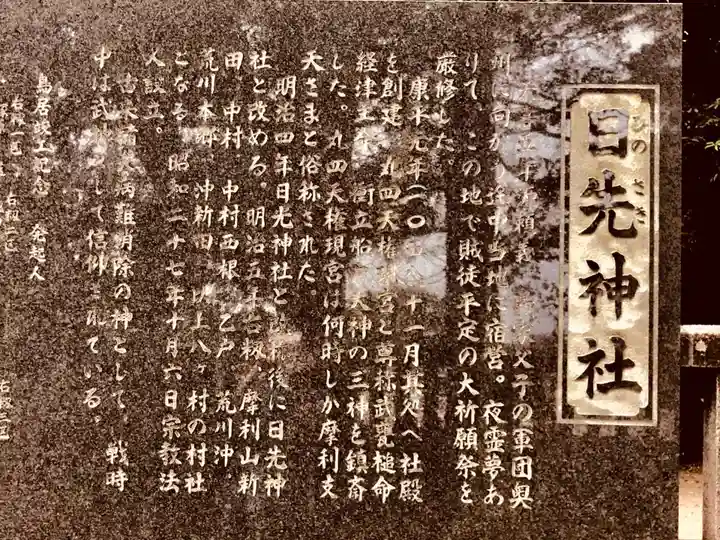 日先神社
ひの さき
頼義 父子の軍団奥
州に向かう途中当地に宿営。夜霊夢あ
りて、この地で賊徒平定の大祈願祭を
厳修した
康平元年(一〇五八 十一月其処へ社殿
を創建 丸四天権現宮と尊称武甕槌命
経津主 天神の三神を鎮斎
した。丸四天権現宮は何時しか摩利支
天さまと俗称された
明治四年日先神社と 後に日先神
社と改める。明治五年 摩利山新
田、中村、中村西根、乙戸、荒川沖。
荒川本郷、沖新田、以上八ヶ村の村社
となる。昭和二十七年十月六日宗教法
人設立。
古来 病難消除の神として、戦時
中は武 として信仰されている。
鳥居竣工記念 発起人